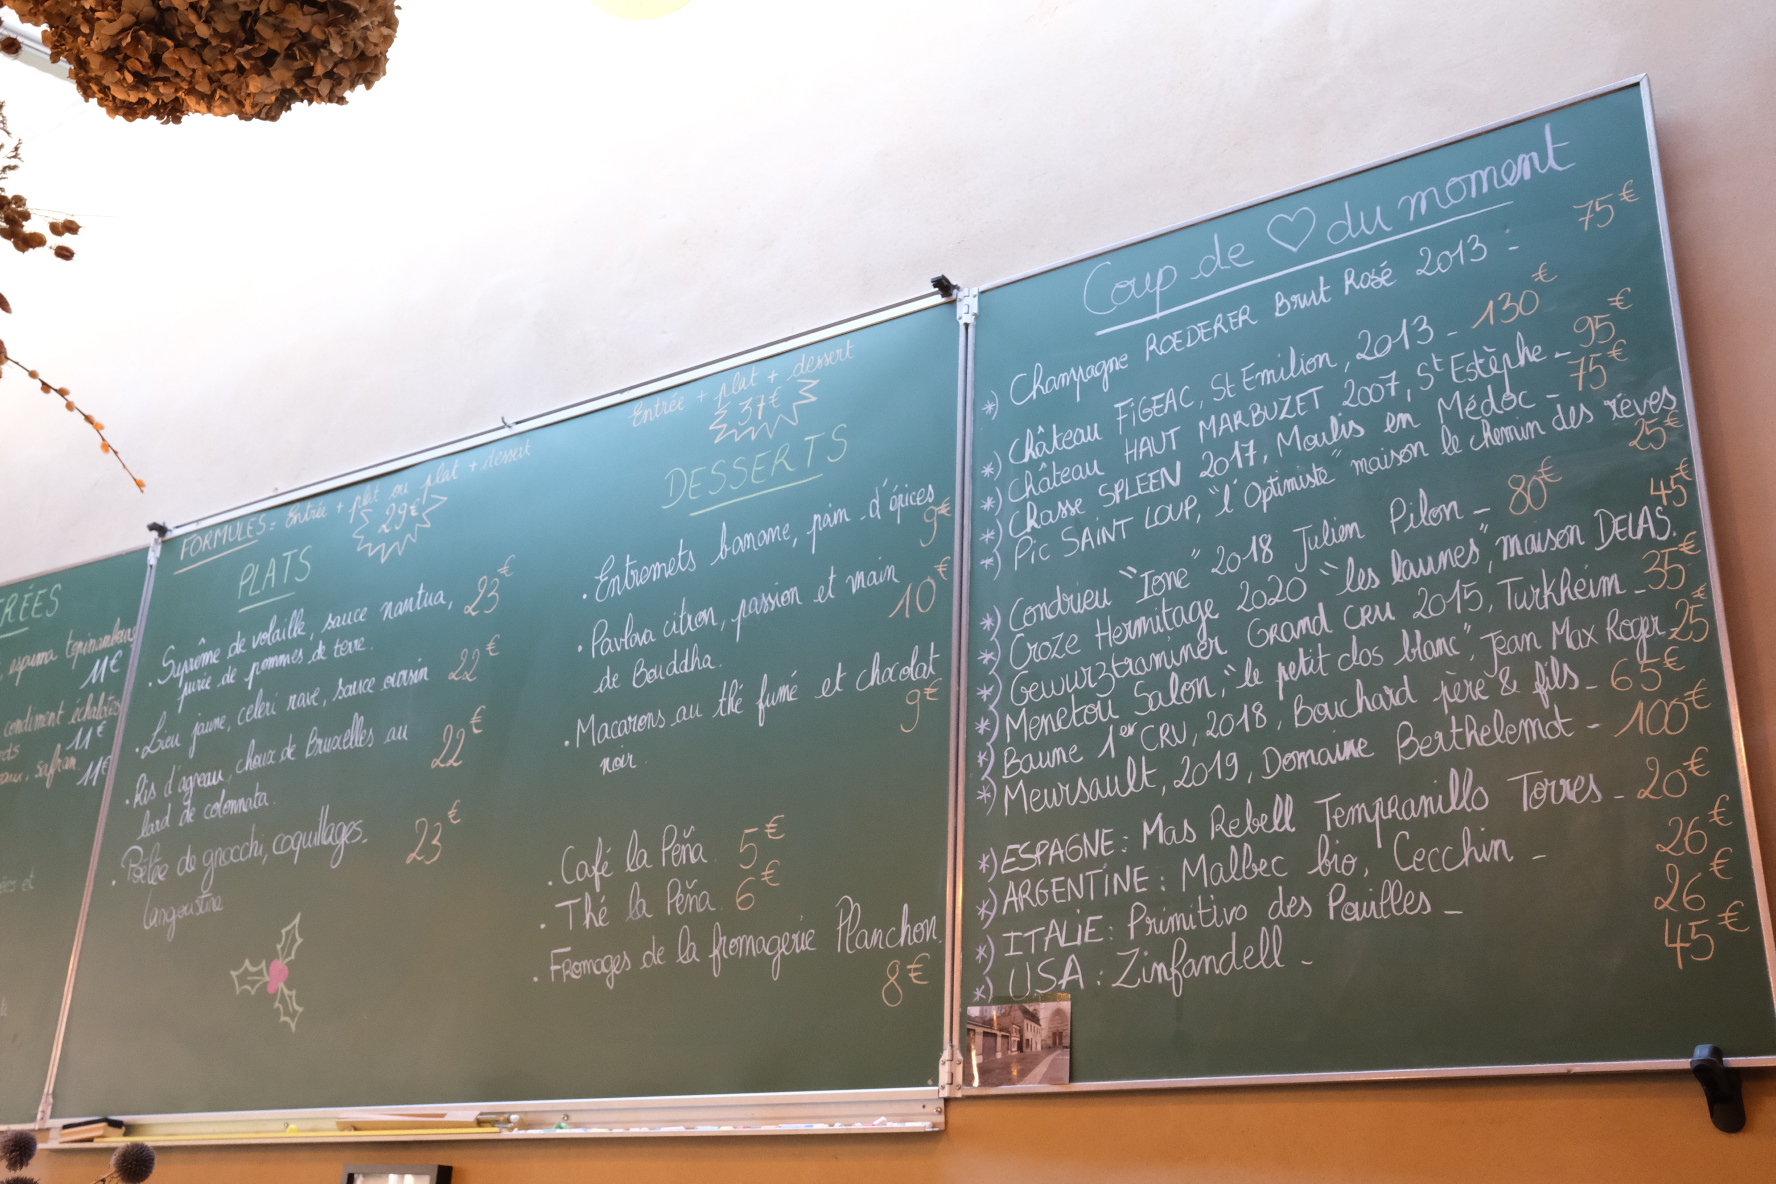 RÉES
espuma topinambour
11€
condiment échalotes
11€
safran
11€
et
FORMULES = Entrée + plat ou plat + dessert
29€
PLATS
. Suprême de volaille, sauce nantua, 23€
purée de pommes de terre.
. Lieu jaune, celeri rave, sauce oursin 22€
. Ris d'agneau, choux de Bruxelles au 22€
lard de colonnata.
. Poêlée de gnocchi, coquillages. 23€
langoustine
Entrée + plat + dessert
37€
DESSERTS
. Entremets banane, pain d'épices
9€
. Pavlova citron, passion et main 10€
de Bouddha.
. Macarons au thé fumé et chocolat
noir. 9€
. Café la Peña 5€
. Thé la Peña 6€
. Fromages de la fromagerie Planchon.
8€
Coup de ♡ du moment
*) Champagne ROEDERER Brut Rosé 2013 - 75€
*) Château FIGEAC, St Emilion, 2013 - 130€
*) Château HAUT MARBUZET 2007, St Estèphe - 95€
*) Chasse SPLEEN 2017, Moulis en Médoc - 75€
*) Pic SAINT LOUP, "l'Optimiste" maison le chemin des rêves
25€
*) Condrieu "Ione" 2018 Julien Pilon - 80€
*) Croze Hermitage 2020 "les launes", maison DELAS. 45€
*) Gewurztraminer Grand CRU 2015, Turkheim - 35€
*) Menetou Salon, "le petit clos blanc", Jean Max Roger 25€
*) Baume 1er CRU, 2018, Bouchard père & fils - 65€
*) Meursault, 2019, Domaine Berthelemot - 100€
*) ESPAGNE : Mas Rebell Tempranillo Torres - 20€
*) ARGENTINE : Malbec bio, Cecchin - 26€
*) ITALIE : Primitivo des Pouilles - 26€
*) USA : Zinfandell - 45€